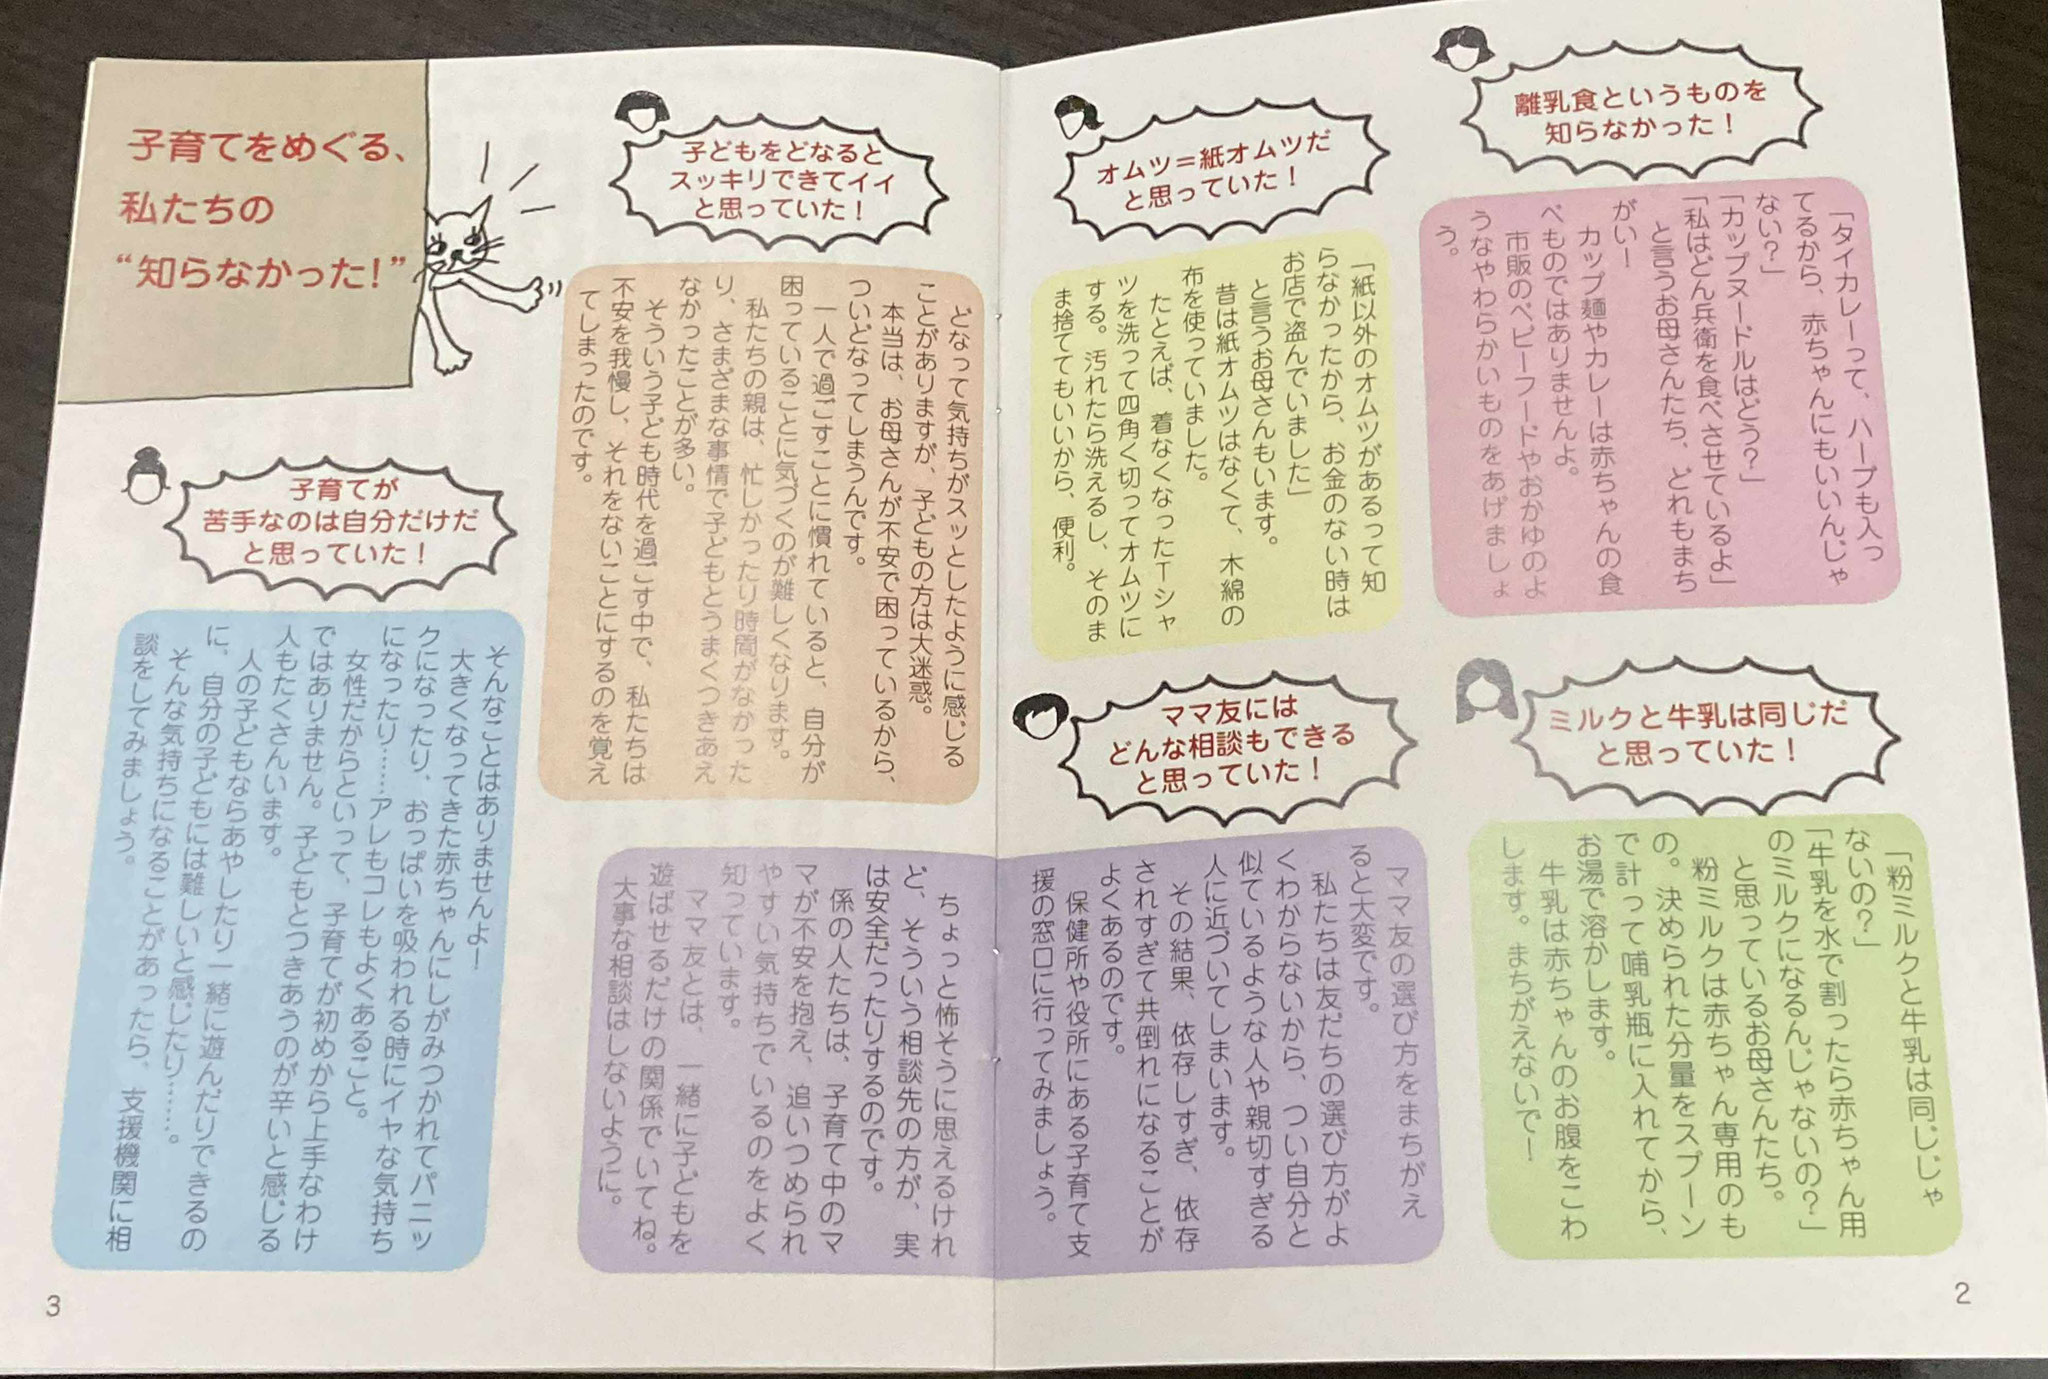 離乳食というものを
知らなかった！
「タイカレーって、ハーブも入っ
てるから、赤ちゃんにもいいんじゃ
ない？」
「カップヌードルはどう？」
「私はどん兵衛を食べさせているよ」
と言うお母さんたち、どれもまち
がい！
カップ麺やカレーは赤ちゃんの食
べものではありませんよ。
市販のベビーフードやおかゆのよ
うなやわらかいものをあげましょ
う。
ミルクと牛乳は同じだ
と思っていた！
「粉ミルクと牛乳は同じじゃ
ないの？」
「牛乳を水で割ったら赤ちゃん用
のミルクになるんじゃないの？」
と思っているお母さんたち。
粉ミルクは赤ちゃん専用のも
の。決められた分量をスプーン
で計って哺乳瓶に入れてから、
お湯で溶かします。
牛乳は赤ちゃんのお腹をこわ
します。まちがえないで！
オムツ＝紙オムツだ
と思っていた！
「紙以外のオムツがあるって知
らなかったから、お金のない時は
お店で盗んでいました」
と言うお母さんもいます。
昔は紙オムツはなくて、木綿の
布を使っていました。
たとえば、着なくなったTシャ
ツを洗って四角く切ってオムツに
する。汚れたら洗えるし、そのま
ま捨ててもいいから、便利。
ママ友には
どんな相談もできる
と思っていた！
ママ友の選び方をまちがえ
ると大変です。
私たちは友だちの選び方がよ
くわからないから、つい自分と
似ているような人や親切すぎる
人に近づいてしまいます。
その結果、依存しすぎ、依存
されすぎて共倒れになることが
よくあるのです。
保健所や役所にある子育て支
援の窓口に行ってみましょう。
ちょっと怖そうに思えるけれ
ど、そういう相談先の方が、実
は安全だったりするのです。
係の人たちは、子育て中のマ
マが不安を抱え、追いつめられ
やすい気持ちでいるのをよく
知っています。
ママ友とは、一緒に子どもを
遊ばせるだけの関係でいてね。
大事な相談はしないように。
子どもをどなると
スッキリできてイイ
と思っていた！
どなって気持ちがスッとしたように感じる
ことがありますが、子どもの方は大迷惑。
本当は、お母さんが不安で困っているから、
ついどなってしまうんです。
一人で過ごすことに慣れていると、自分が
困っていることに気づくのが難しくなります。
私たちの親は、忙しかったり時間がなかった
り、さまざまな事情で子どもとうまくつきあえ
なかったことが多い。
そういう子ども時代を過ごす中で、私たちは
不安を我慢し、それをないことにするのを覚え
てしまったのです。
子育てをめぐる、
私たちの
“知らなかった！”
子育てが
苦手なのは自分だけだ
と思っていた！
そんなことはありませんよ！
大きくなってきた赤ちゃんにしがみつかれてパニッ
クになったり、おっぱいを吸われる時にイヤな気持ち
になったり……アレもコレもよくあること。
女性だからといって、子育てが初めから上手なわけ
ではありません。子どもとつきあうのが辛いと感じる
人もたくさんいます。
人の子どもならあやしたり一緒に遊んだりできるの
に、自分の子どもには難しいと感じたり……。
そんな気持ちになることがあったら、支援機関に相
談をしてみましょう。
3
2